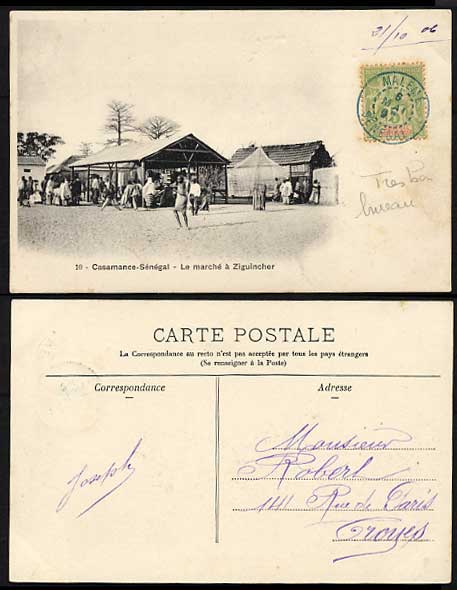 31/10 06
5
Tres bon
bureau
10 - Casamance-Sénégal - Le marché à Ziguincher
CARTE POSTALE
La Correspondance au recto n'est pas acceptée par tous les pays étrangers
(Se renseigner à la Poste)
Correspondance
Adresse
Joseph
Monsieur
Robert
141 Rue de Paris
Troyes